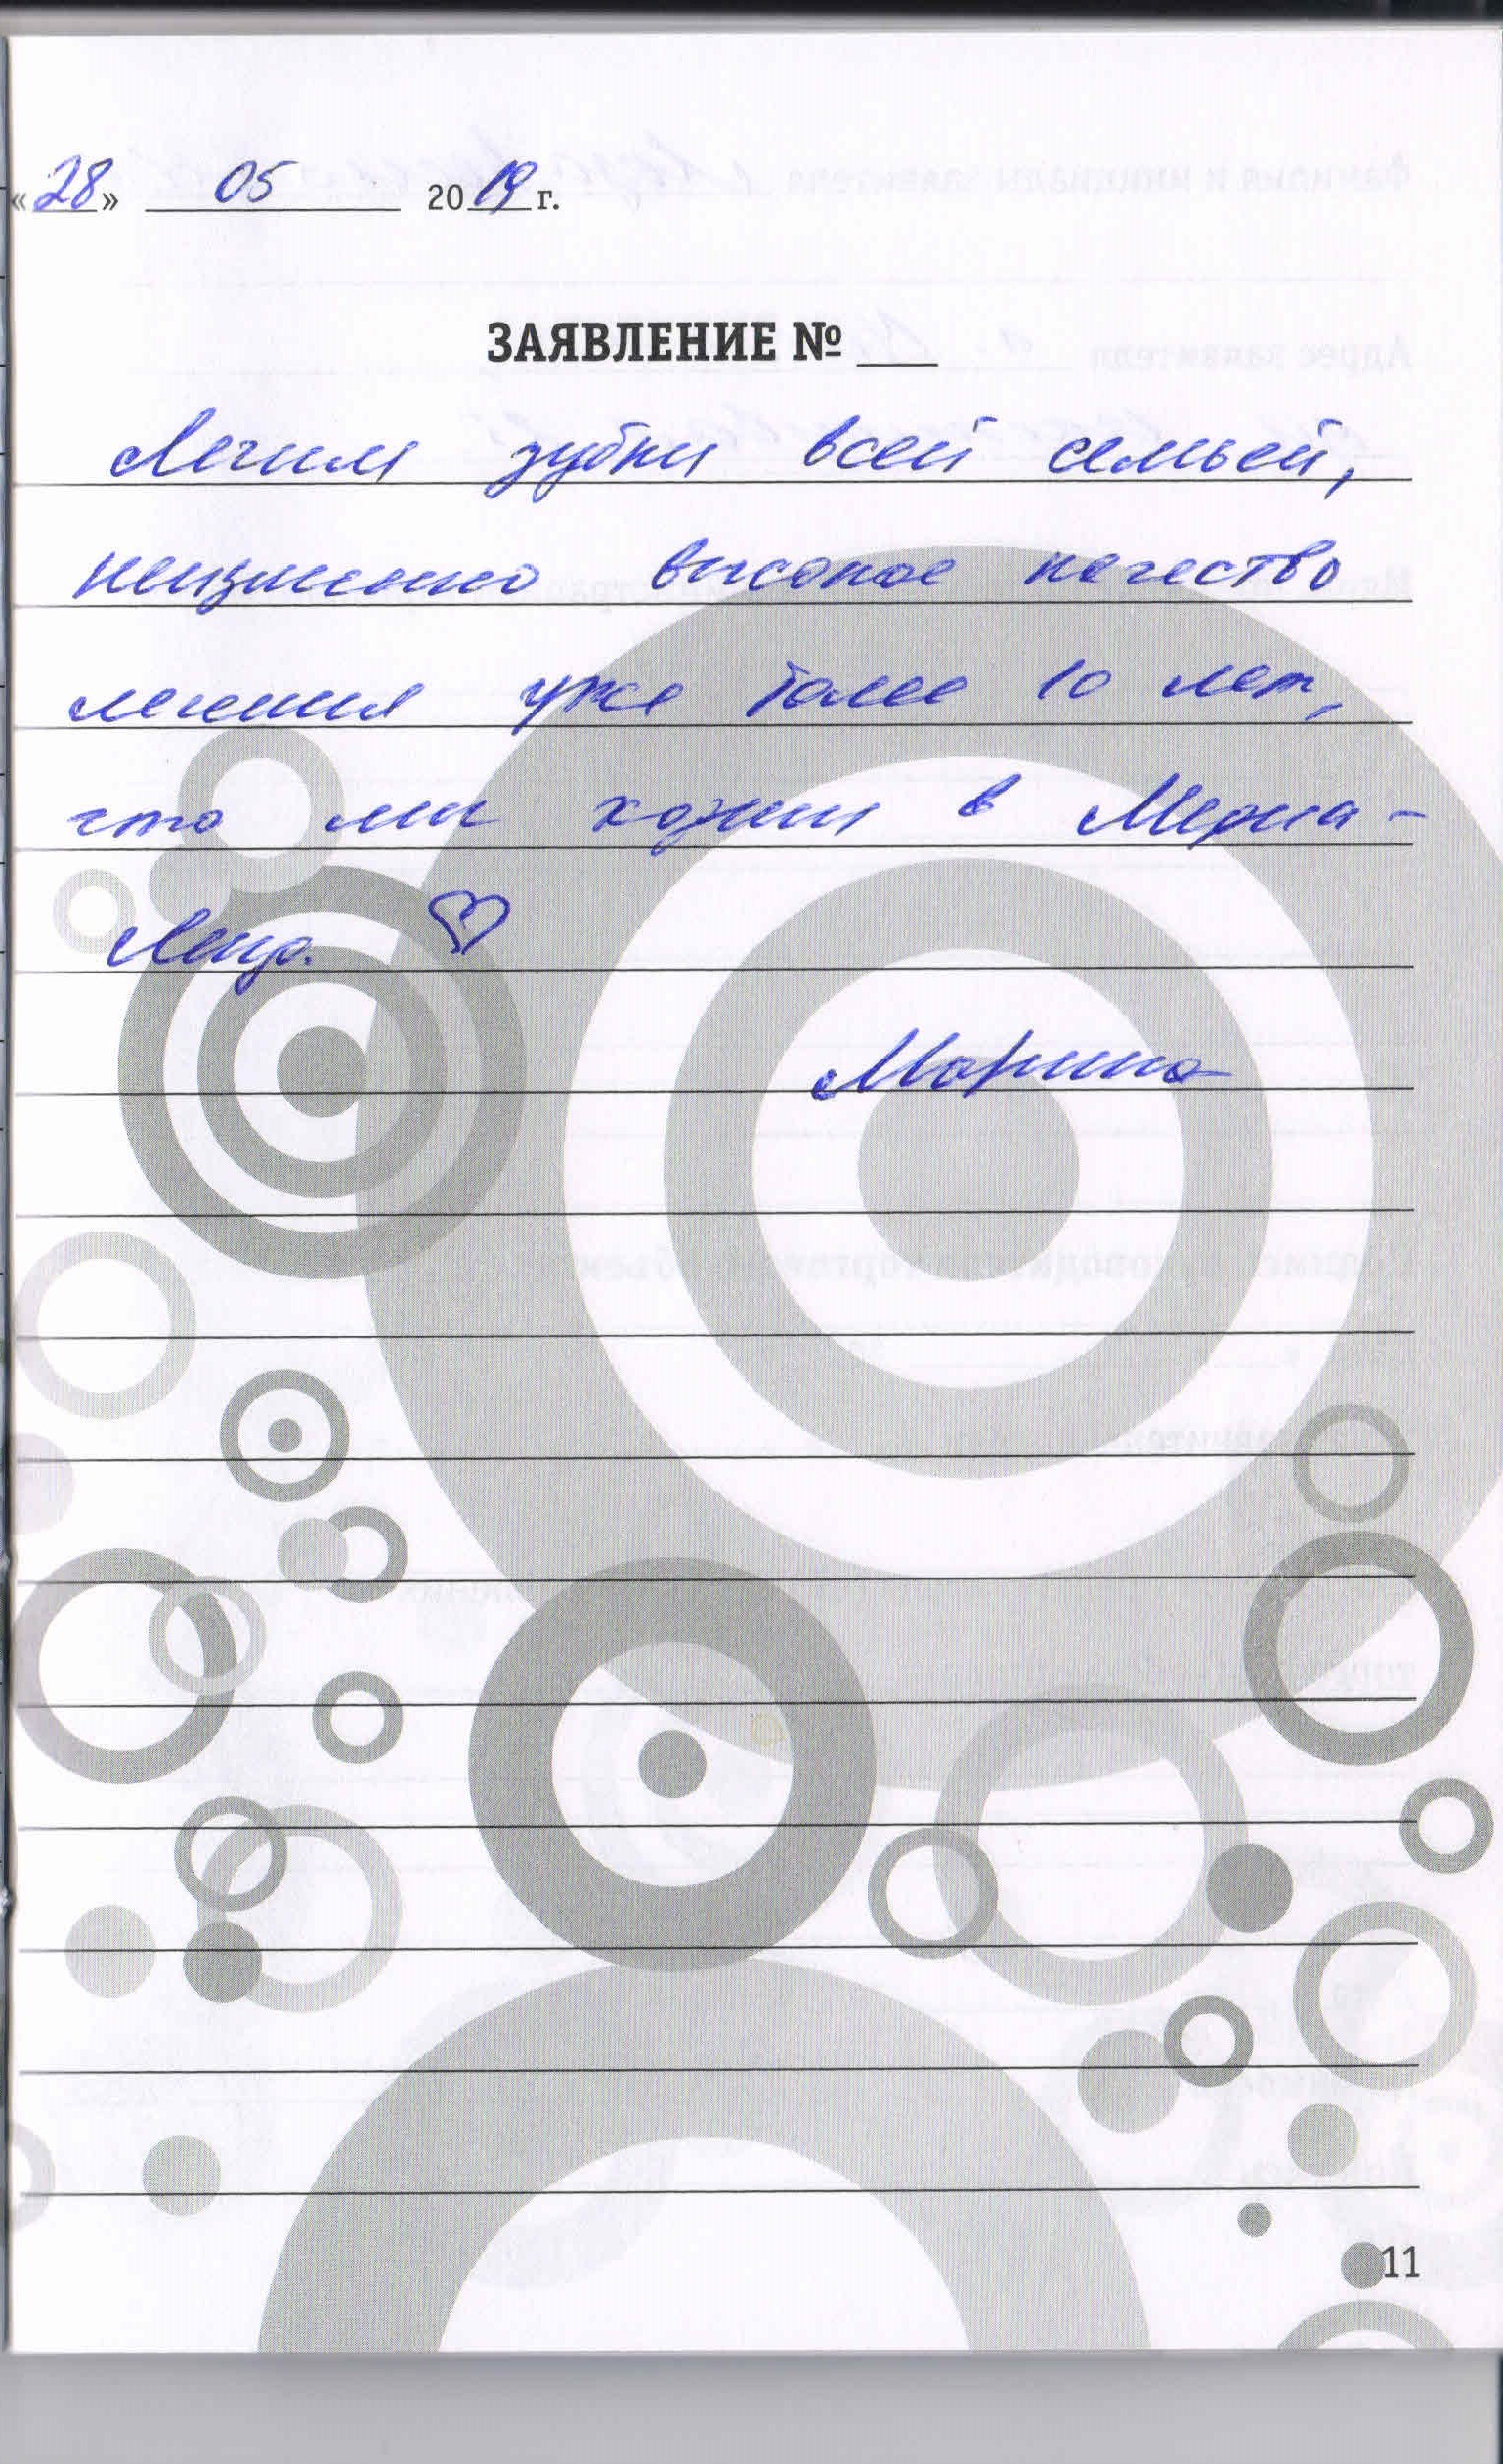 «28» 05 2019 г.
ЗАЯВЛЕНИЕ № ___
Лечим зубки всей семьей,
неизменно высокое качество
лечения уже более 10 лет,
что мы ходим в Мериа-
Ленд.
Марина
11